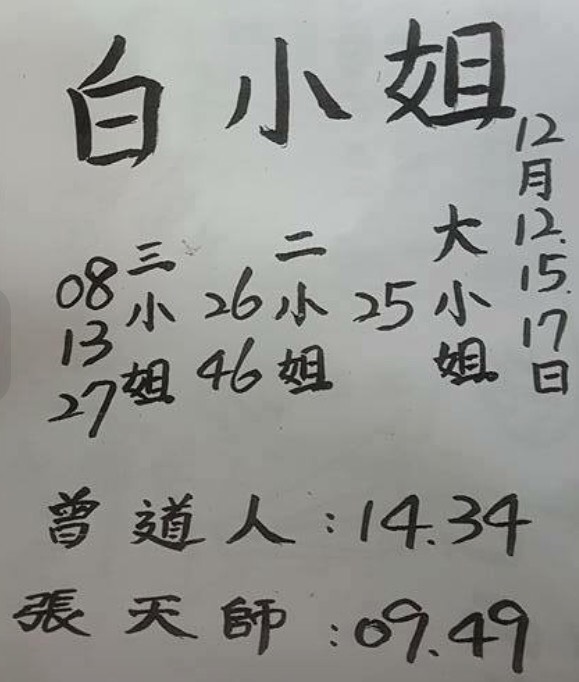 白小姐
12月12.15.17日
大小姐
25
二小姐
26
46
三小姐
08
13
27
曾道人:14.34
張天師:09.49